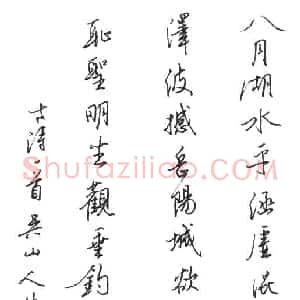 八月湖水平涵虚混
澤波撼岳陽城欲
恥聖明坐觀垂釣
古诗一首吴山人
Shufaziliao.com